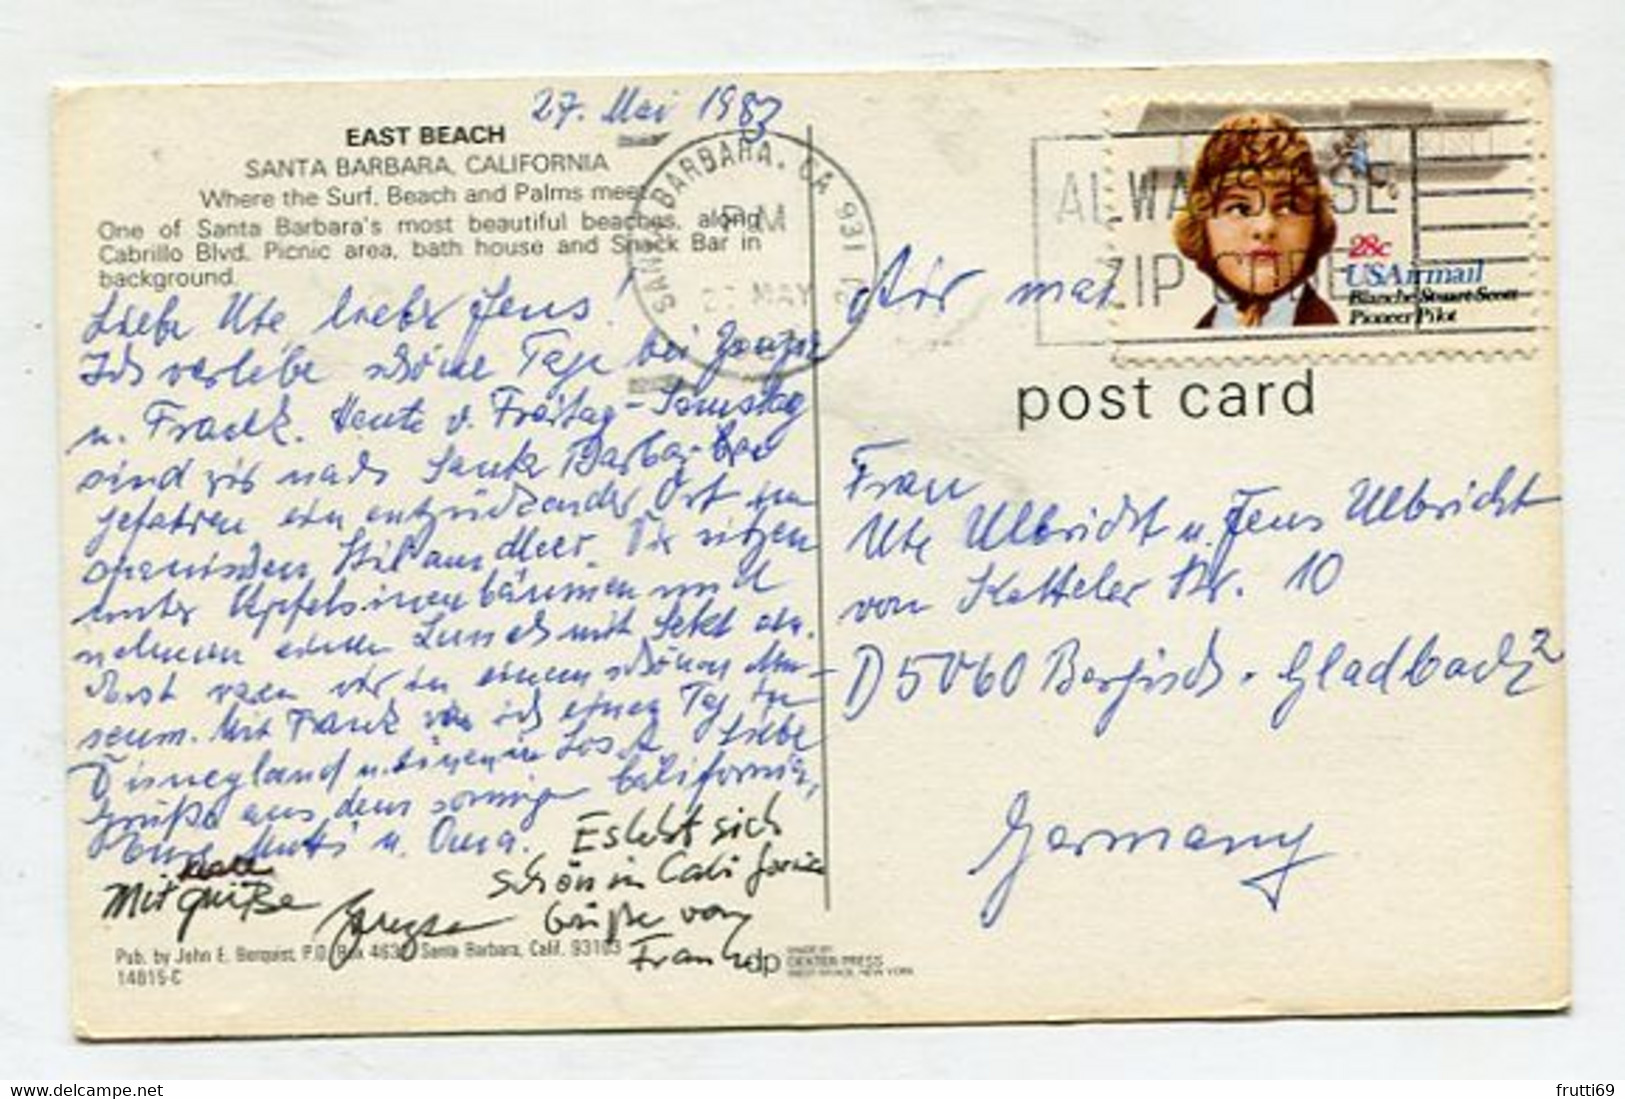 27. Mai 1983
EAST BEACH
SANTA BARBARA, CALIFORNIA
Where the Surf, Beach and Palms meet.
One of Santa Barbara's most beautiful beaches, along
Cabrillo Blvd. Picnic area, bath house and Snack Bar in
background.
Liebe Ute, lieber Jens!
Ich verlebe schöne Tage bei
u. Frank. Heute v. Freitag-Samstag
sind wir nach Santa Barbara
gefahren ein entzückender Ort im
spanischen Stil am Meer. Wir sitzen
unter Apfelsinenbäumen und
nehmen einen Lunch mit Sekt ein.
Erst waren wir in einem schönen Mu-
seum. Mit Frank war ich einen Tag in
Disneyland u. einen in Los A. Liebe
Grüße aus dem sonnigen California,
Eure Mutti u. Oma.
Mit Grüße
Es lebt sich
schön in California
Grüße von
Frank
Pub. by John E. Berquist, P.O. Box 4637 Santa Barbara, Calif. 93103
14815-C
dp
MADE BY
DEXTER PRESS
WEST NYACK, NEW YORK
SANTA BARBARA, CA 931
PM
MAY
ALWAYS USE
ZIP CODE
28c
USAirmail
Blanche Stuart Scott
Pioneer Pilot
Air mail
post card
Frau
Ute Ulbricht u. Jens Ulbricht
von Ketteler Str. 10
D 5060 Bergisch-Gladbach 2
Germany
frutti69